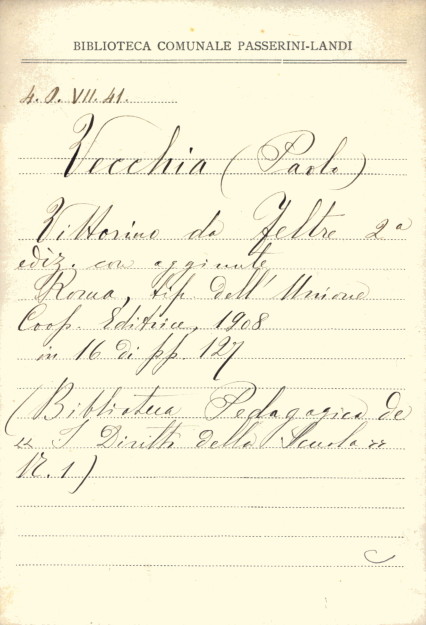 BIBLIOTECA COMUNALE PASSERINI-LANDI
4.O.VII.41.
Vecchia (Paolo)
Vittorino da Feltre 2ª
ediz. con aggiunte
Roma, tip dell' Unione
Coop. Editrice, 1908
in 16 di pp. 127
(Biblioteca Pedagogica de
"I Diritti della Scuola"
N. 1)